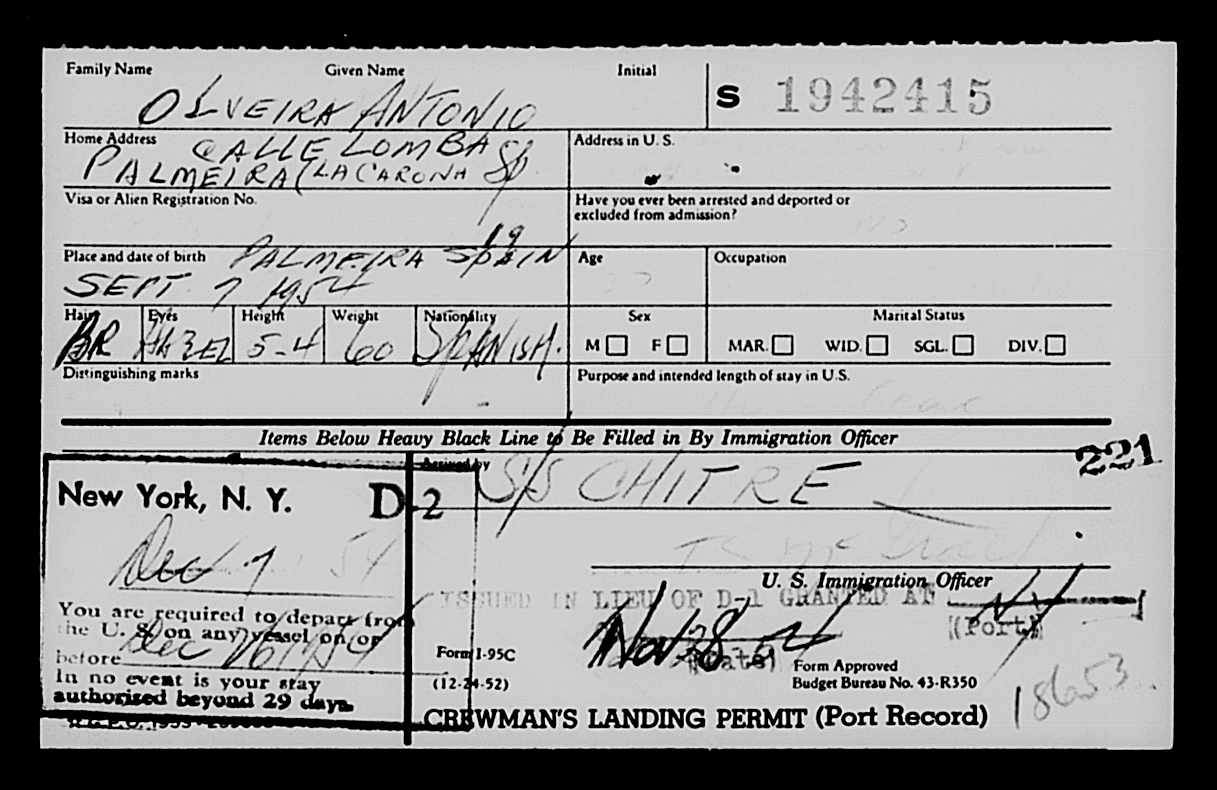 Family Name Given Name Initial
S 1942415
OLVEIRA ANTONIO
Home Address CALLE LOMBA Address in U. S.
PALMEIRA (LA CARONA Sp
Visa or Alien Registration No. Have you ever been arrested and deported or
excluded from admission?
19
Place and date of birth PALMEIRA SPAIN Age Occupation
SEPT. 7 1954
Hair Eyes Height Weight Nationality Sex Marital Status
BR HAZEL 5-4 60 SPANISH. M F MAR. WID. SGL. DIV.
Distinguishing marks Purpose and intended length of stay in U.S.
Items Below Heavy Black Line to Be Filled in By Immigration Officer
221
Arrived by S/S CHITRE
New York, N. Y. D-2
Dec 7 54
U. S. Immigration Officer
ISSUED IN LIEU OF D-1 GRANTED AT NY
(Port)
You are required to depart from
the U. S. on any vessel on or
before Dec 26 1954
Nov 28 54
(Date)
In no event is your stay
authorised beyond 29 days.
Form I-95C
(12-24-52)
Form Approved
Budget Bureau No. 43-R350
18653
CREWMAN'S LANDING PERMIT (Port Record)